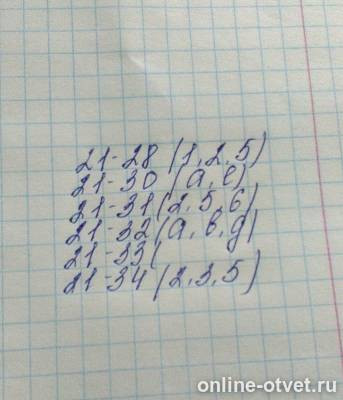 21-28 (1, 2, 5)
21-30 (а, е)
21-31 (2, 5, 6)
21-32 (а, в, д)
21-33 (
21-34 (2, 3, 5)
online-otvet.ru